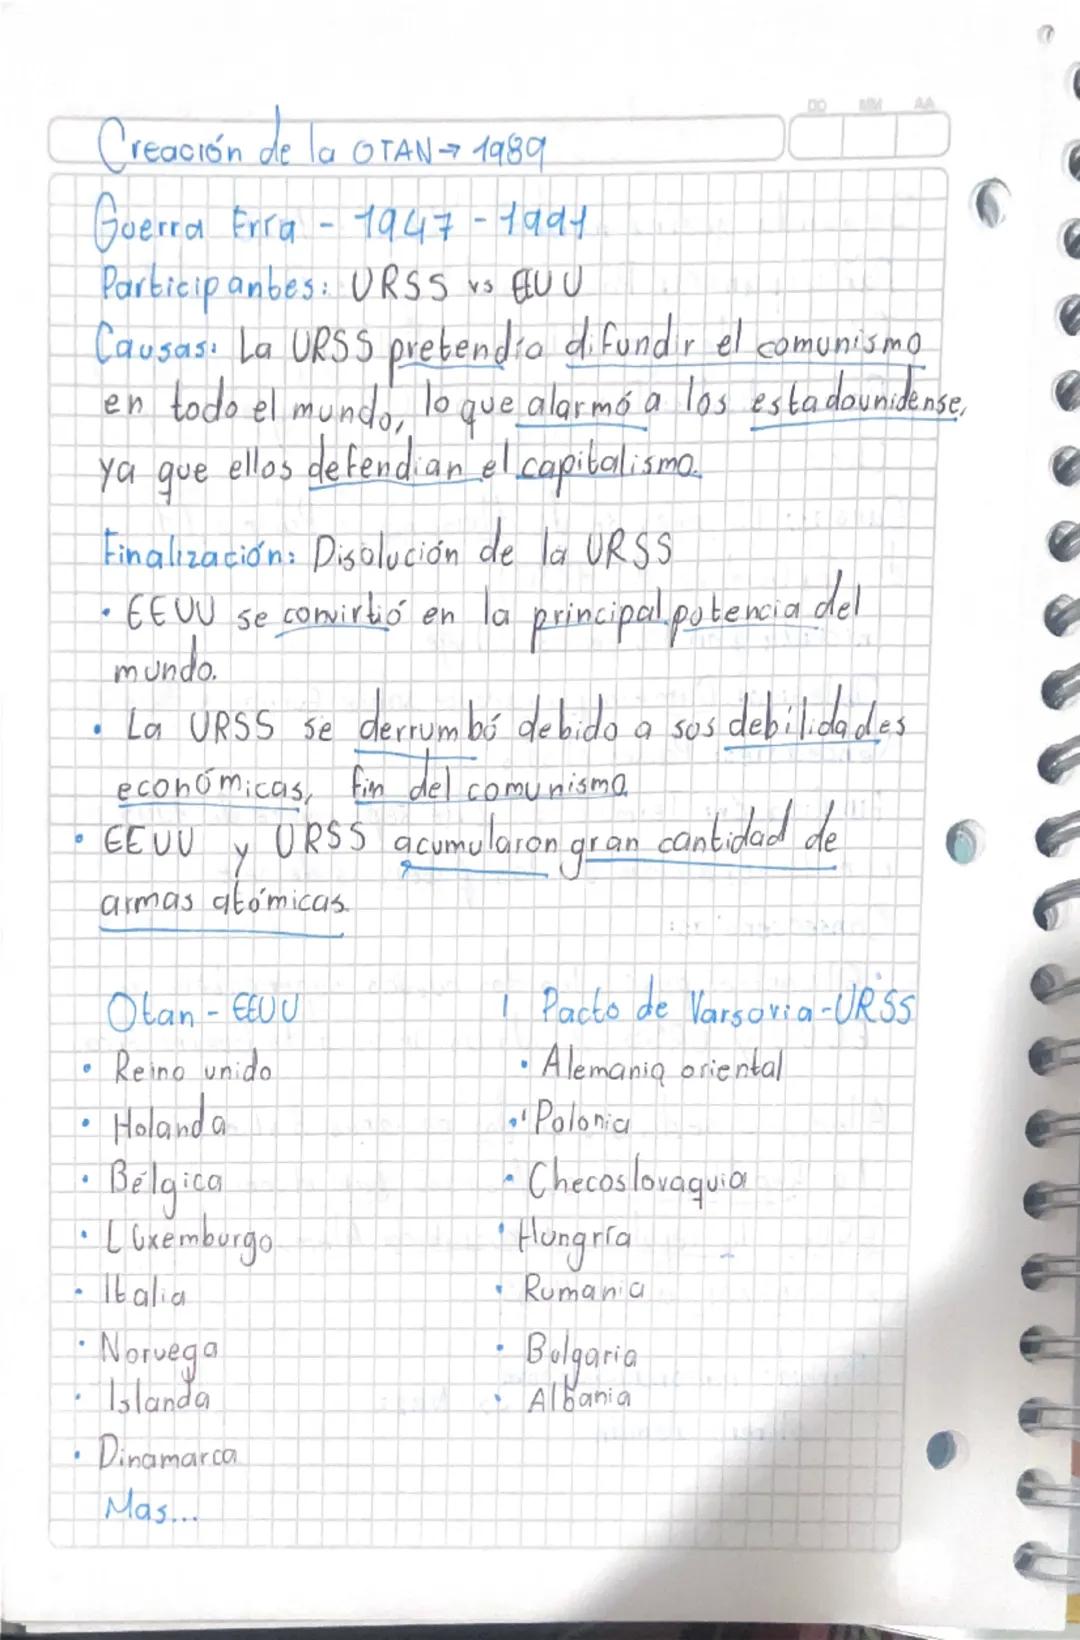 DD MM AA
Creación de la OTAN → 1989
Guerra Fría - 1947 - 1991
Participantes: URSS vs EEUU
Causas: La URSS pretendía difundir el comunismo
en todo el mundo, lo que alarmó a los estadounidense,
ya que ellos defendian el capitalismo.
Finalización: Disolución de la URSS
• EEUU se convirtió en la principal potencia del
mundo.
• La URSS se derrumbó debido a sus debilidades
económicas, fin del comunismo.
• EEUU y URSS acumularon gran cantidad de
armas atómicas.
Otan - EEUU
• Reino unido
• Holanda
• Bélgica
• Luxemburgo
• Italia
• Noruega
• Islanda
• Dinamarca
Mas...
Pacto de Varsovia - URSS
• Alemania oriental
• Polonia
• Checoslovaquia
• Hungría
• Rumania
• Bulgaria
• Albania